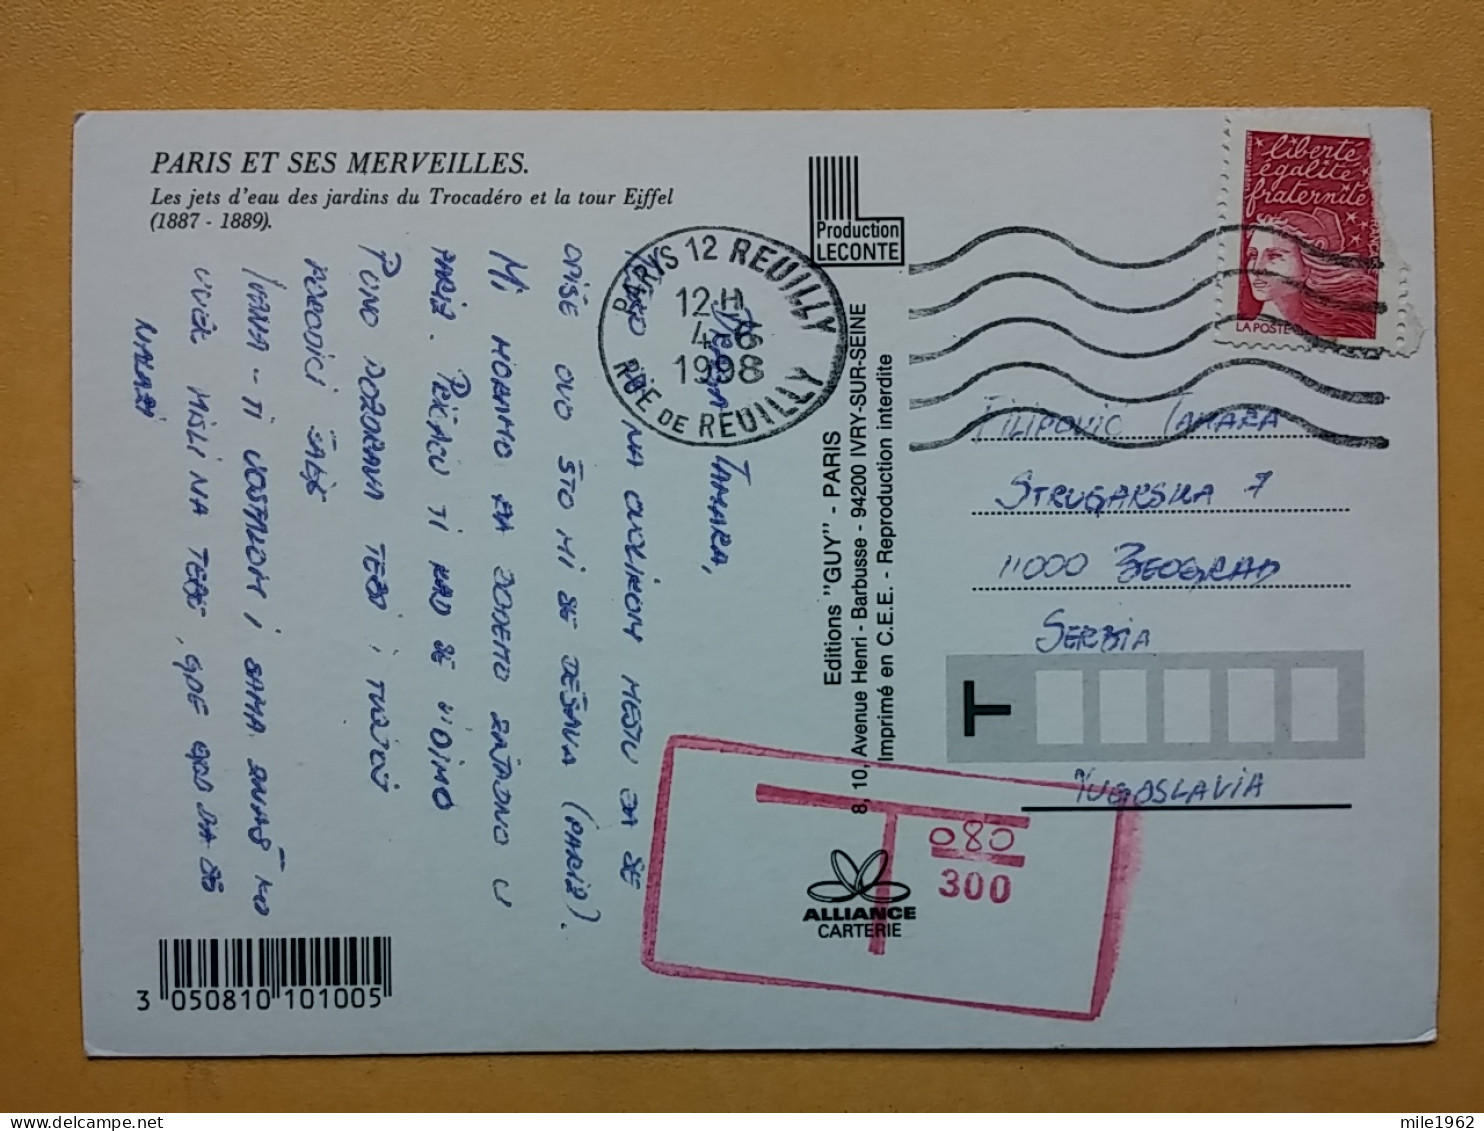 PARIS ET SES MERVEILLES.
Les jets d'eau des jardins du Trocadéro et la tour Eiffel
(1887 - 1889).
Production
LECONTE
liberté
égalité
fraternité
FRANCE
LA POSTE
PARIS 12 REUILLY
12H
4-6
1998
RUE DE REUILLY
DRAGA TAMARA,
NA OVOLIKOM MESTU DA SE
OPIŠE OVO ŠTO MI SE DEŠAVA (PARIZ).
MI MORAMO DA DOĐEMO ZAJEDNO U
PARIZ. PRIČAĆU TI KAD SE VIDIMO
PUNO POZDRAVA TEBI I TVOJOJ
PORODICI ŠALJE
IVANA - TI UOSTALOM I SAMA ZNAŠ KO
UVEK MISLI NA TEBE, GDE GOD DA SE
NALAZI
Editions "GUY" - PARIS
8, 10, Avenue Henri - Barbusse - 94200 IVRY-SUR-SEINE
Imprimé en C.E.E. - Reproduction interdite
FILIPOVIĆ TAMARA
STRUGARSKA 7
11000 BEOGRAD
SERBIA
T
YUGOSLAVIA
T
080
300
ALLIANCE
CARTERIE
3 050810 101005
mile1962